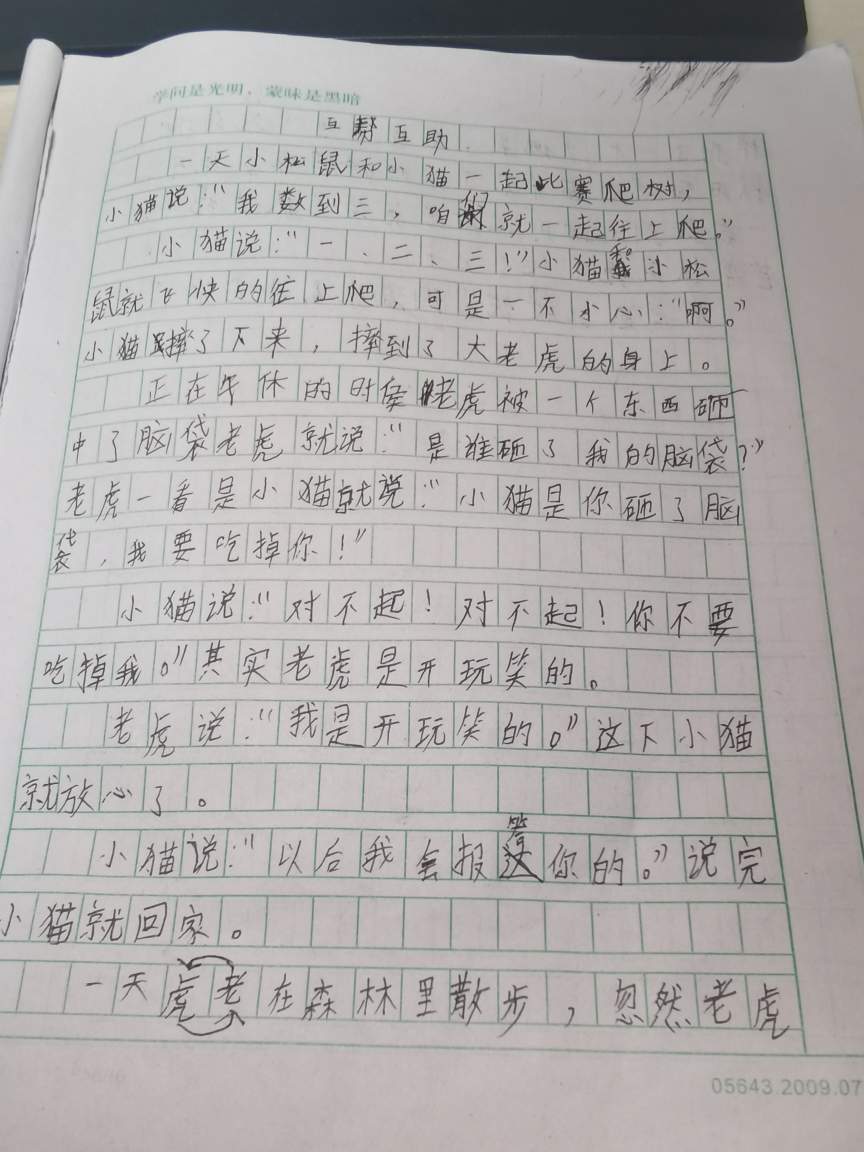 学问是光明，蒙昧是黑暗
互帮互助
一天小松鼠和小猫一起比赛爬树，
小猫说："我数到三，咱们就一起往上爬。"
小猫说："一、二、三！"小猫和小松
鼠就飞快的往上爬，可是一不小心："啊。"
小猫摔了下来，摔到了大老虎的身上。
正在午休的时侯老虎被一个东西砸
中了脑袋老虎就说："是谁砸了我的脑袋？"
老虎一看是小猫就说："小猫是你砸了脑
袋，我要吃掉你！"
小猫说："对不起！对不起！你不要
吃掉我。"其实老虎是开玩笑的。
老虎说："我是开玩笑的。"这下小猫
就放心了。
小猫说："以后我会报答你的。"说完
小猫就回家。
一天虎老在森林里散步，忽然老虎
05643.2009.07